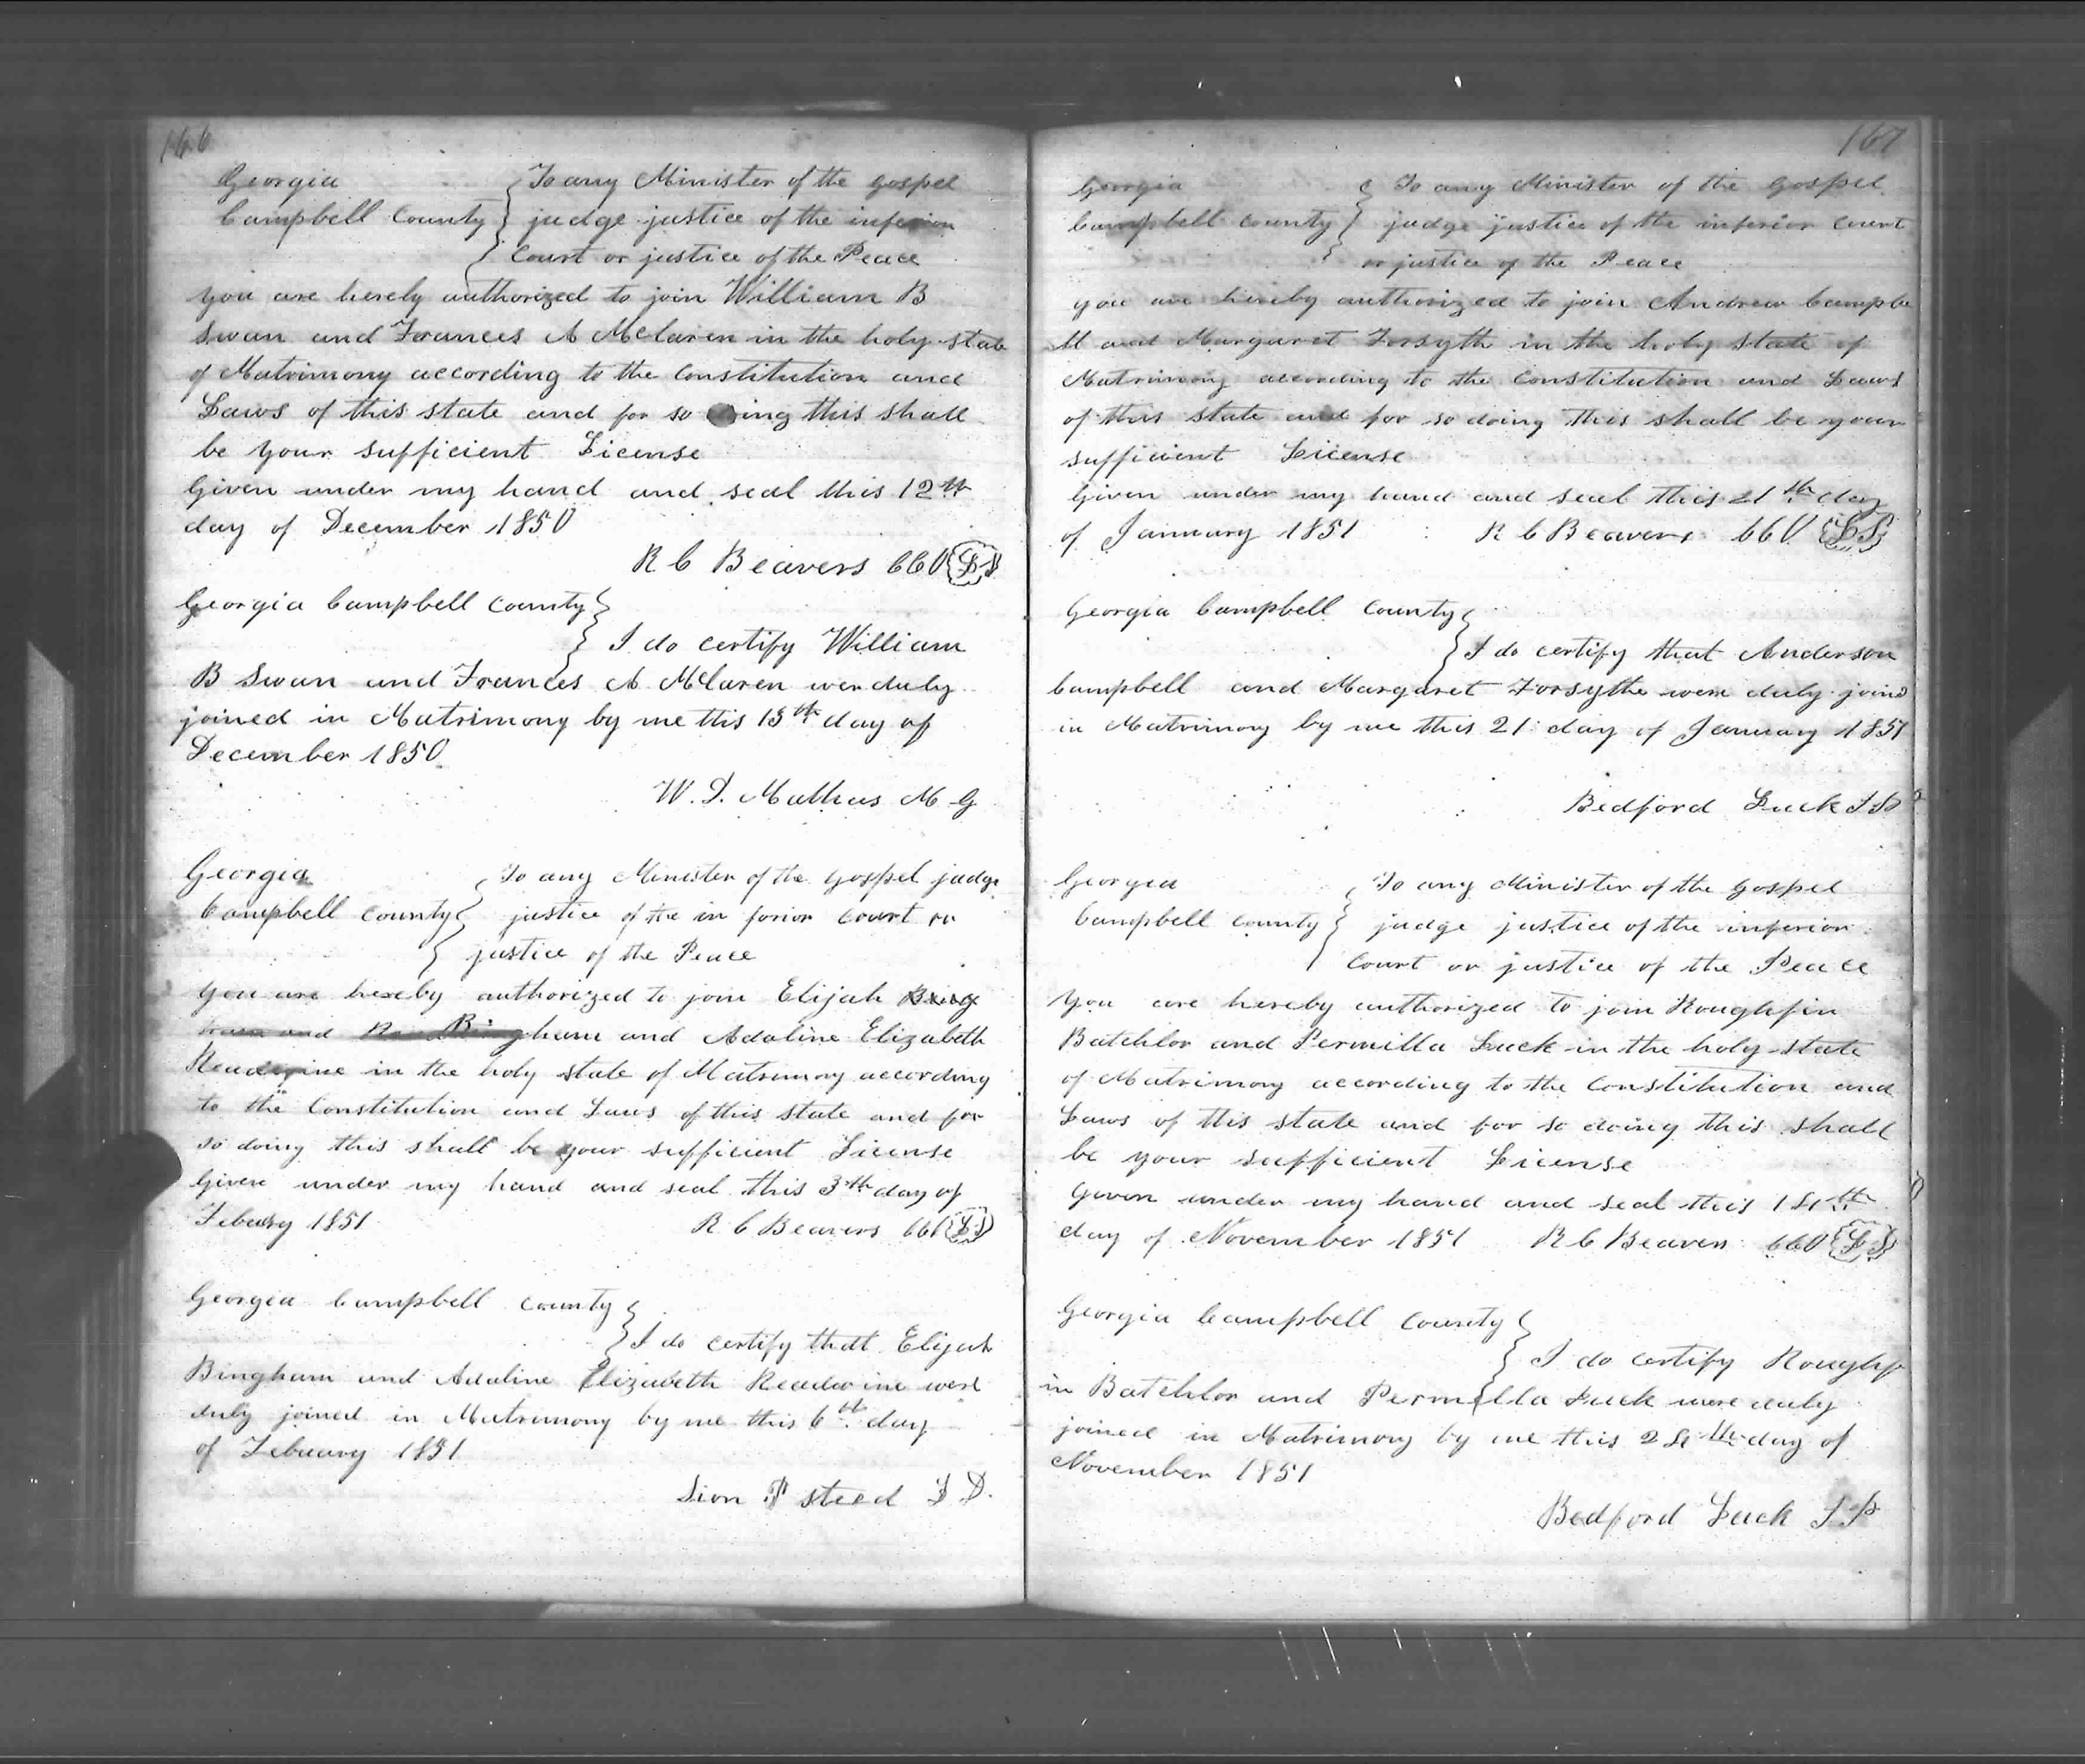 166
Georgia
Campbell County
To any Minister of the Gospel
judge justice of the inferior
Court or justice of the Peace
you are hereby authorized to join William B
Swan and Frances A McLaren in the holy state
of Matrimony according to the Constitution and
Laws of this state and for so doing this shall
be your sufficient License
Given under my hand and seal this 12th
day of December 1850
R C Beavers CCO LS
Georgia Campbell County
I do certify William
B Swan and Frances A McLaren wer duly
joined in Matrimony by me this 15th day of
December 1850
W. D. Mathus M G
Georgia
Campbell County
To any Minister of the Gospel judge
justice of the in forior Court or
justice of the Peace
you are hereby authorized to join Elijah Bing
ham and Bingham and Adaline Elizabeth
Readwine in the holy state of Matrimony according
to the Constitution and Laws of this state and for
so doing this shall be your sufficient License
Given under my hand and seal this 3th day of
Febuary 1851
R C Beavers CCO LS
Georgia Campbell County
I do certify that Elijah
Bingham and Adaline Elizabeth Readwine were
duly joined in Matrimony by me this 6th day
of Febuary 1851
Sion P Steed J P.
167
Georgia
Campbell County
To any Minister of the Gospel
judge justice of the inferior Court
or justice of the Peace
you are hereby authorized to join Andrew Campbe
ll and Margaret Forsyth in the holy state of
Matrimony according to the Constitution and Laws
of this state and for so doing this shall be your
sufficient License
Given under my hand and seal this 21th day
of January 1851
R C Beavers CCO LS
Georgia Campbell County
I do certify that Anderson
Campbell and Margaret Forsythe were duly joind
in Matrimony by me this 21 day of January 1851
Bedford Luck J P
Georgia
Campbell County
To any Minister of the Gospel
judge justice of the inferior
Court or justice of the Peace
You are hereby authorized to join Roughfin
Batchlor and Permilla Luck in the holy state
of Matrimony according to the Constitution and
Laws of this state and for so doing this shall
be your sufficient License
Given under my hand and seal this 14th
day of November 1851
R C Beavers CCO LS
Georgia Campbell County
I do certify Roughf
in Batchlor and Permilla Luck were duly
joined in Matrimony by me this 24th day of
November 1851
Bedford Luck J P